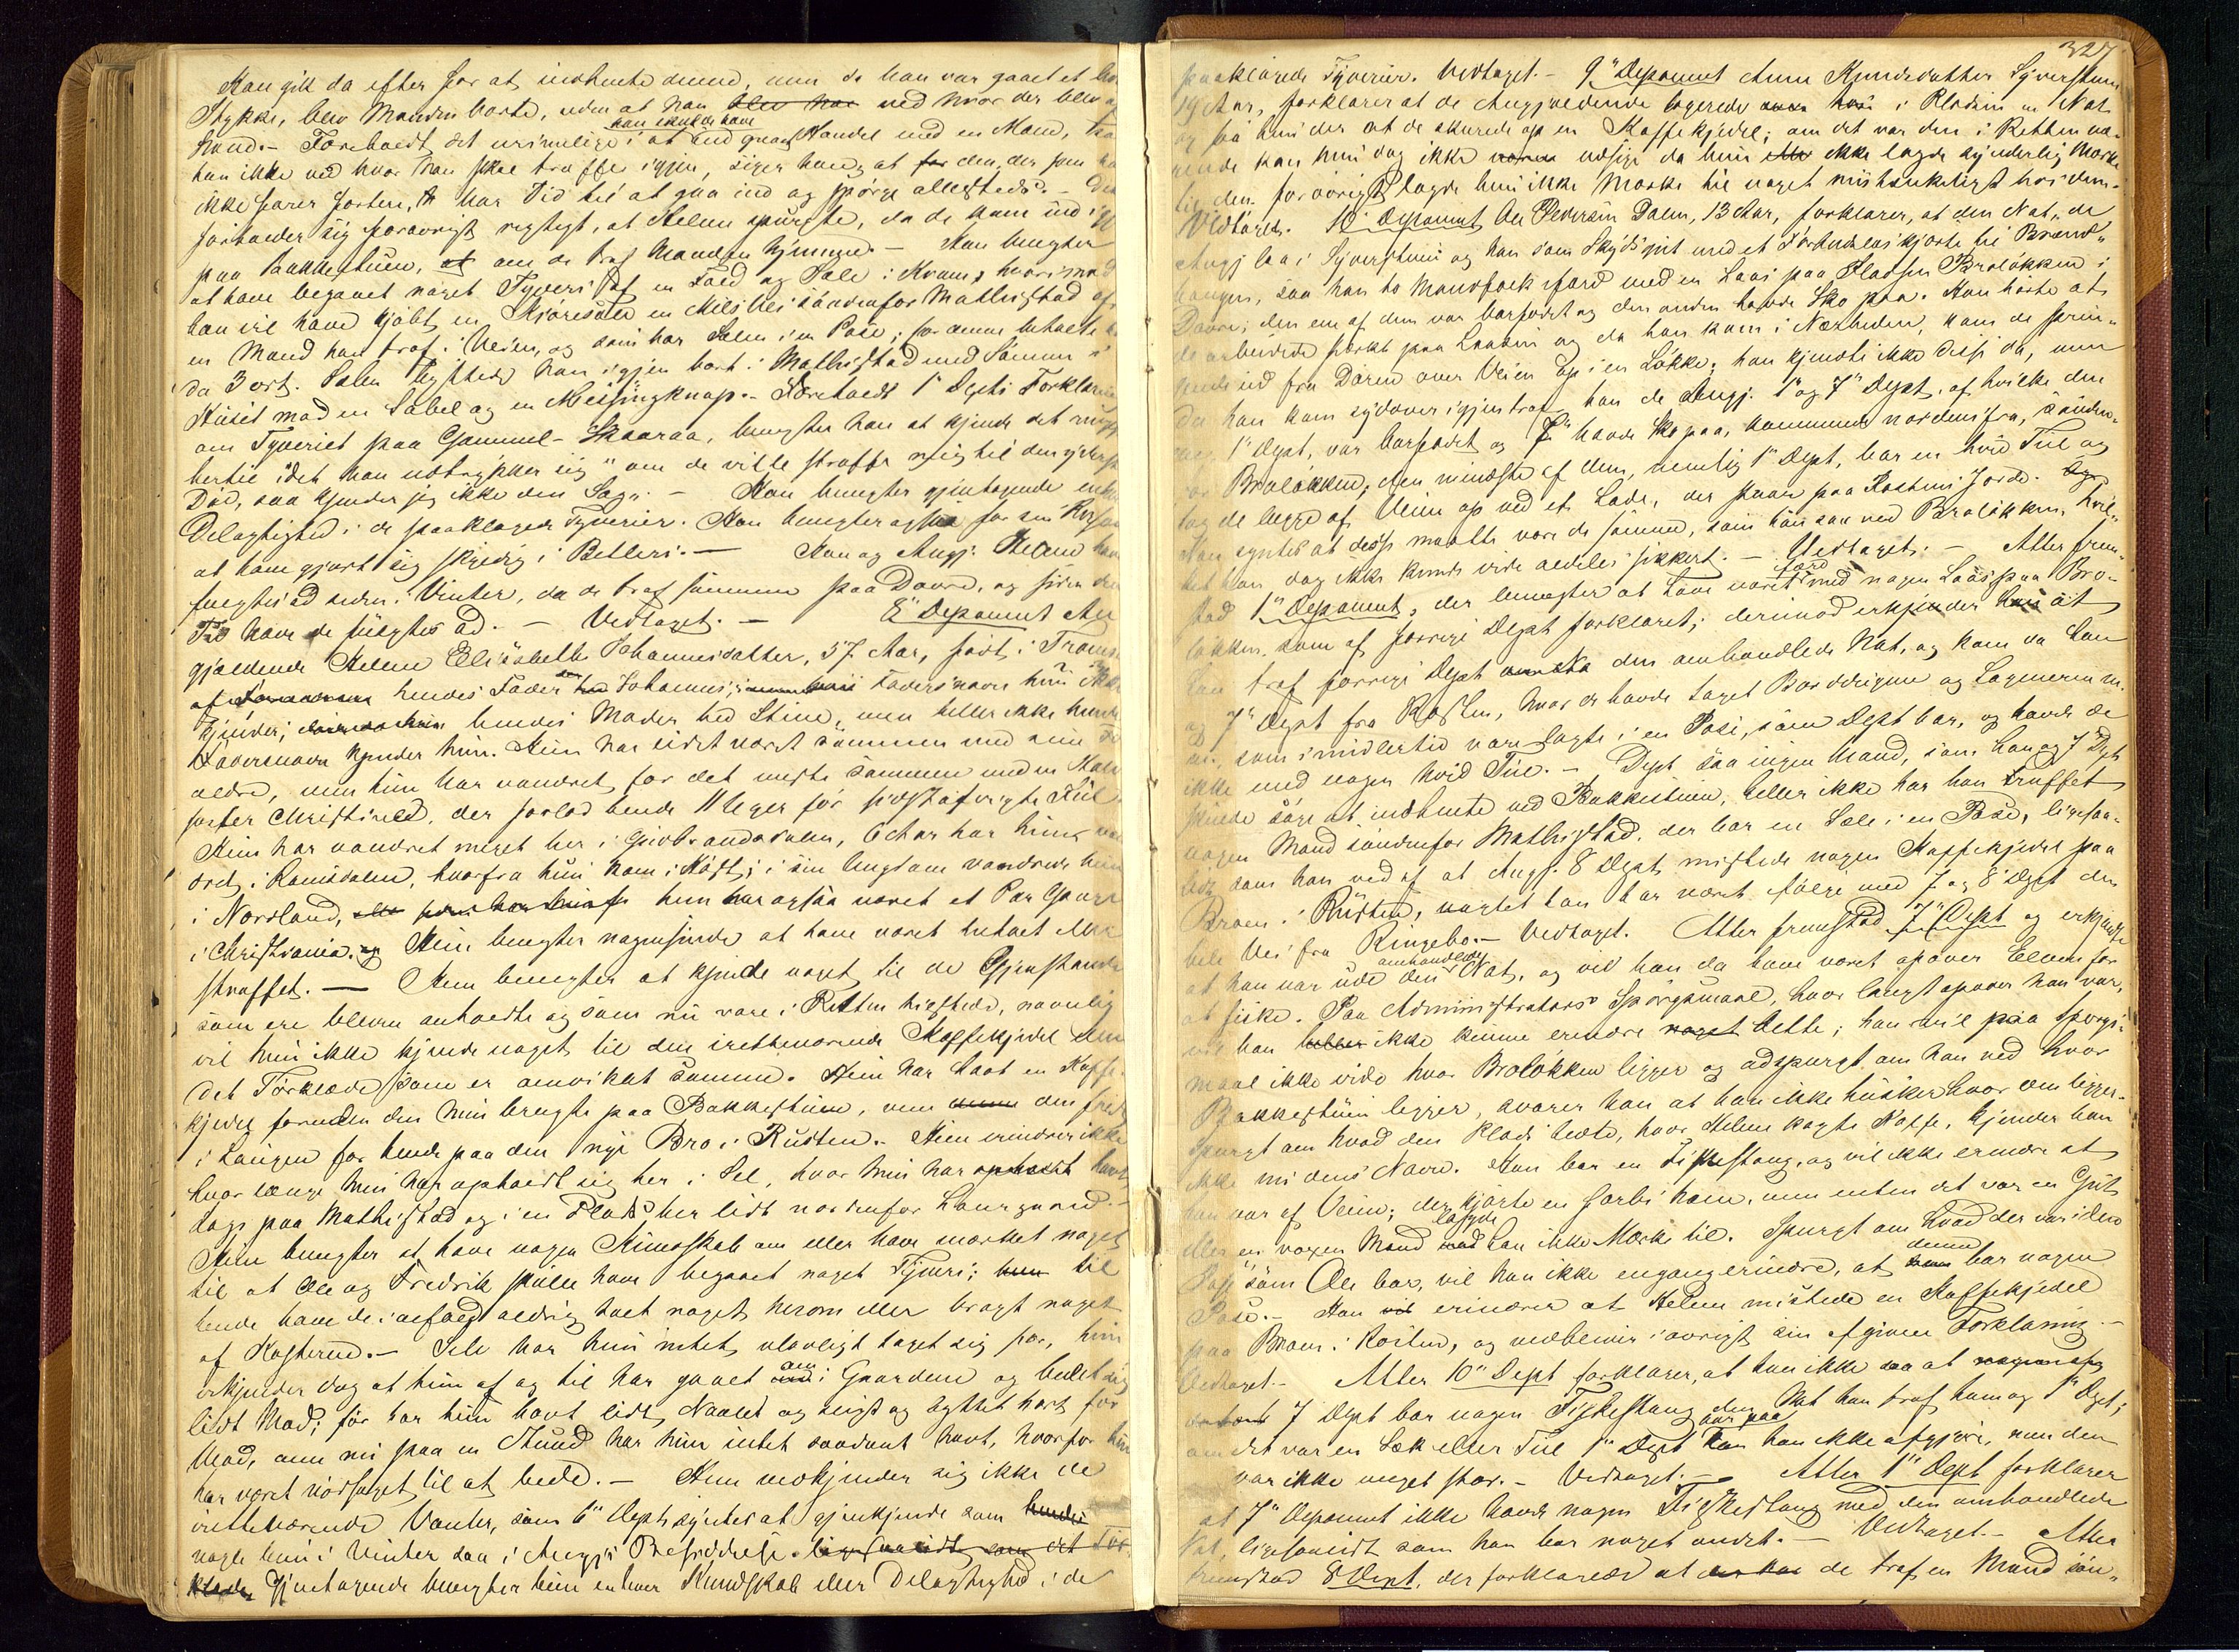 Han gik da efter for at indhente denne, men da han var gaaet et
Stykke, blev Manden borte, uden at han blev har ved hvor der blev af
ham. - Foreholdt det urimelige i at han skulde have Handel med en Mand,
han ikke ved hvor han skal træffe igjen, siger han, at for den, der som han
ikke farer fortere, har Tid til at gaa ind og spørge allesteds. - Det
forholder sig forøvrigt rigtigt, at Helene spurgte, da de kom ind
paa Bakkestuen, at om de traf Manden hjemme. - Han benægter
at have begaaet noget Tyveri af en Fæld og Sæle i Kvam, hvorimod
han vil have kjøbt en Kjøresæle en Miils Vei søndenfor Mathistad af
en Mand han traf i Veien, og som bar Sælen i en Pose; for denne betalte
da 3 ort. Sælen byttede han igjen bort i Mathistad med Sønnen i
Huset mod en Sabel og en Messingknap. - Foreholdt 1ste Depts Forklaring
om Tyveriet paa Gammel-Skaaraa, benægter han at kjende det
bertil idet han udtrykker sig "om de vil straffe mig til den yderste
Død, saa kjender jeg ikke den Sag". - Han benægter gjentagende enhver
Delagtighed i de paaklagede Tyverier. Han benægter ogsaa for sin Person
at have gjort sig skyldig i Betleri. - Han og Angj. Helene have
fulgtes ad siden i Vinter, da de traf sammen paa Dovre, og siden den
Tid have de fulgtes ad. - Vedtaget. - 8de Deponent An
gjældende Helene Elisabeth Johannesdatter, 57 Aar, født i Tromsø
af hendes Fader hed Johannes, Fadersnavn hun ikke
kjender; hendes Moder hed Stine, men heller ikke hendes
Fadersnavn kjender hun. Hun har lidet været sammen med sine For
ældre, men hun har vandret for det meste sammen med en
søster Christine, der forlod hende 11 Uger før sidstafvigte Juul.
Hun har vandret meget her i Gudbrandsdalen, 6 Aar har hun
ord i Romsdalen, hvorfra hun kom i Høst; i sin Ungdom vandrede hun
i Nordland, hun har ogsaa været et Par Gange
i Christiania. Hun benægter nogensinde at have været tiltalt eller
straffet. - Hun benægter at kjende noget til de Gjenstande
som ere blevne anholdte og som nu vare i Retten tilstede, navnlig
vil hun ikke kjende noget til den iretteværende Kaffekjedel eller
det Tørklæde, som er omviklet samme. Hun har havt en Kaffe-
kjedel foruden den hun brugte paa Bakkestuen, men den
i Laagen for hende paa den nye Bro i Rusten. - Hun erindrer ikke
hvor længe hun har opholdt sig her i Sel, hvor hun har opholdt
dage paa Mathistad og i en Plads her lidt nordenfor Laurgaard. -
Hun benægter at have nogen Kundskab om eller have mærket noget
til at Ole og Fredrik skulle have begaaet noget Tyveri; hun til
hende have de i alfald aldrig talt noget herom eller bragt noget
af Kosterne. - Selv har hun intet ulovligt taget sig for, hun
erkjender dog at hun af og til har gaaet om i Gaardene og bedet sig
lidt Mad; før har hun havt lidt Naalet og sligt og byttet bort for
Mad, men nu paa en Stund har hun intet saadant havt, hvorfor hun
har været nødsaget til at bede. - Hun vedkjender sig ikke de
iretteværende Vanter, som 6te Dept syntes at gjenkjende som hendes
nogle hun i Vinter saa i Angjs Besiddelse. ligesaalidt som det Tør-
klæde Gjentagende benægter hun enhver Kundskab eller Delagtighed i de
327
paaklagede Tyverier. Vedtaget. - 9de Deponent Anne Knudsdatter Syverstuen
19 Aar, forklarer at de Angjældende logerede hos i Pladsen en Nat
og saa hun der at de skurede op en Kaffekjedel; om det var den i Retten væ-
rende kan hun dog ikke udsige da hun ikke lagde synderlig Mærke
til den. forøvrigt lagde hun ikke Mærke til noget mistænkeligt hos dem.
Vedtaget. 10de Deponent Ole Pedersen Dalen, 13 Aar, forklarer, at den Nat, de
Angj. laa i Syverstuen og han som Skydsgut med et kjørte til Brænd-
haugen, saa han to Mandfolk ifærd med en Laas paa Pladsen Broløkken i
Dovre; den ene af dem var barfodet og den anden havde Sko paa. Han hørte at
de arbeidede stærkt paa Laasen og da han kom i Nærheden, kom de spring-
ende ud fra Døren over Veien op i en Løkke; han kjendte ikke disse da, men
da han kom sydover igjen traf han de Angj. 1ste og 7de Dept, af hvilke den
1ste Dept, var barfodet og 7de havde Sko paa, kommende nordenfra, sønden-
for Broløkken; den mindste af dem, nemlig 1ste Dept, bar en hvid Tiil og
tog de begge af Veien op ved et Lade, der staar paa Rostens Jorde.
Han syntes at disse maatte være de samme, som han saa ved Broløkken, hvil-
ket han dog ikke kunde vide aldeles sikkert. - Vedtaget. - Atter frem-
stod 1ste Deponent, der benægter at have været ifærd med nogen Laas paa Bro-
løkken, som af forrige Dept forklaret; derimod erkjender han at
han traf forrige Dept den omhandlede Nat, og kom da han
og 7de Dept fra Rosten, hvor de havde taget Borddugene og Lagenerne m.
m., som imidlertid vare lagte i en Pose, som Dept bar, og havde de
ikke med nogen hvid Tiil. - Dept saa ingen Mand, som han og 7de Dept
skulde søge at indhente ved Bakkestuen, heller ikke har han truffet
nogen Mand søndenfor Mathistad, der bar en Sæle i en Pose, ligesaa-
lidt som han ved af at Angj. 8de Dept mistede nogen Kaffekjedel paa
Broen i Rusten, uagtet han har været i følge med 7de og 8de Dept den
hele Vei fra Ringebo. - Vedtaget. Atter fremstod 7de Dept og erkjender
at han var ude den omhandlede Nat, og vil han da have været opover Elven for
at fiske. Paa Administrators Spørgsmaal, hvor langt opover han var,
vil han heller ikke kunne erindre noget dette; han vil paa Spørgs-
maal ikke vide hvor Broløkken ligger og adspurgt om han ved hvor
Bakkestuen ligger, svarer han at han ikke husker hvor den ligger.
Spurgt om hvad den Plads hedte, hvor Helene kogte Kaffe, kjender han
ikke til dens Navn. Han bar en Fiskestang, og vil ikke erindre at
han var af Veien; der kjørte en forbi ham, men enten det var en Gut
eller en voxen Mand lagde han ikke Mærke til. Spurgt om hvad der var i den
Pose som Ole bar, vil han ikke engang erindre, at denne bar nogen
Pose. - Han vil erindrer at Helene mistede en Kaffekjedel
paa Broen i Rosten, og vedbliver iøvrigt sin afgivne Forklaring. -
Vedtaget. - Atter 10de Dept forklarer, at han ikke saa at
7de Dept bar nogen Fiskestang den Nat han traf ham og 1ste Dept;
om det var en Sæk eller Tiil 1ste Dept bar paa kan han ikke afgjøre, men den
var ikke meget stor. - Vedtaget. - Atter 1ste Dept forklarer
at 7de Deponent ikke havde nogen Fiskestang med den omhandlede
Nat, ligesaalidt som han bar noget andet. - Vedtaget. - Atter
fremstod 8de Dept, der forklarede at de traf en Mand søn-